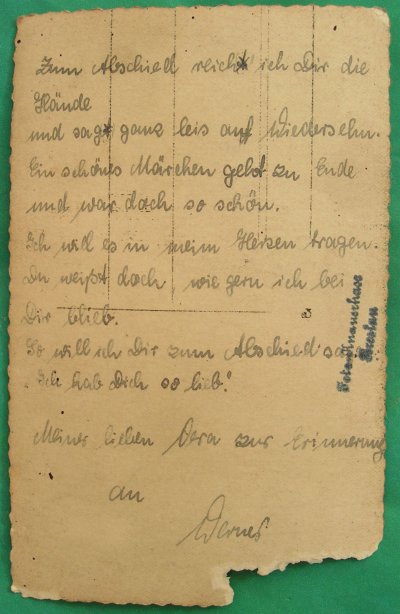 Zum Abschied reich' ich Dir die
Hände
und sag' ganz leis auf Wiedersehn.
Ein schönes Märchen geht zu Ende
und war doch so schön.
Ich will es in meim Herzen tragen.
Du weißt doch wie gern ich bei
Dir blieb.
So will ich Dir zum Abschied sa
"Ich hab Dich so lieb."
Meiner lieben Vera zur Erinnerung
an
Werner
Foto-Knauerhase